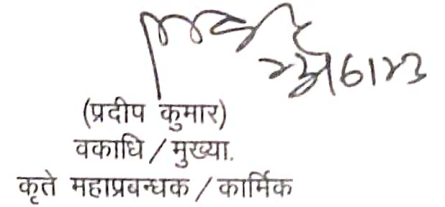 (प्रदीप कुमार)
वकाधि / मुख्या.
कृते महाप्रबन्धक / कार्मिक